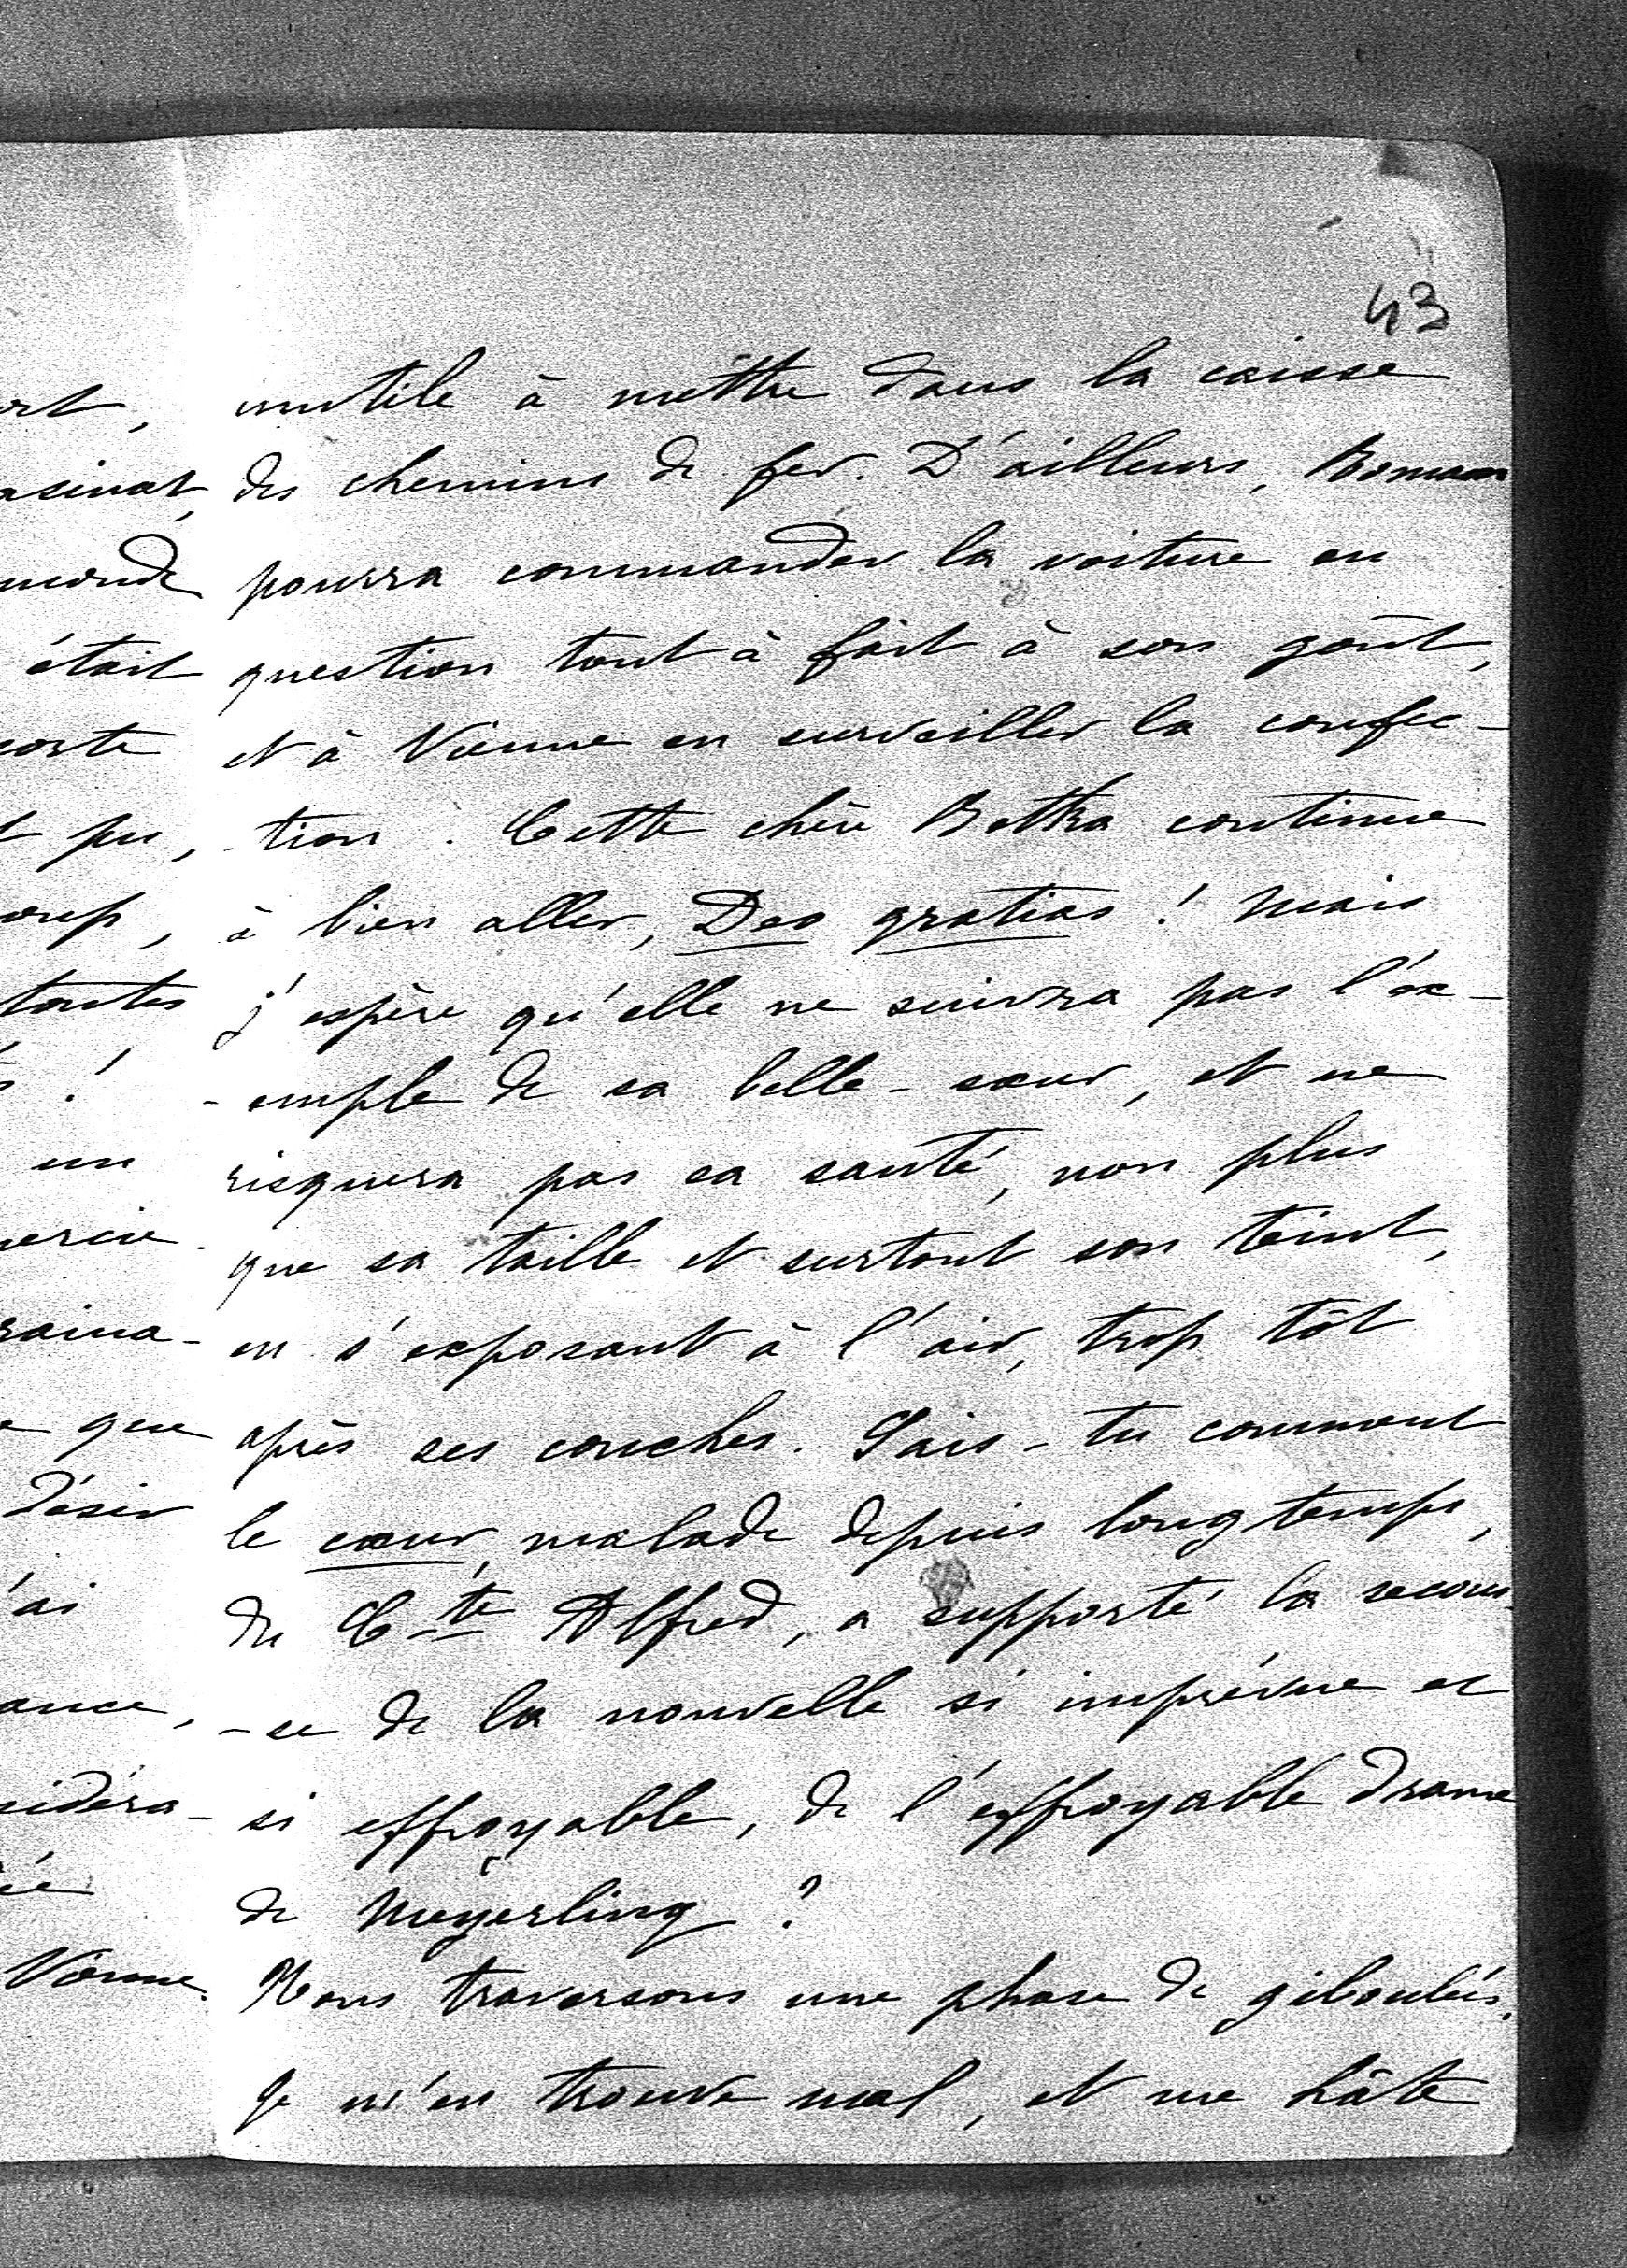 43
inutile à mettre dans la caisse
des chemins de fer. D'ailleurs, Roman
pourra commander la voiture en
question tout à fait à son goût,
et à Vienne en surveiller la confec-
-tion. Cette chère Betka continue
à bien aller, Deo gratias ! Mais
j'espère qu'elle ne suivra pas l'ex-
-emple de sa belle-sœur, et ne
risquera pas sa santé, non plus
que sa taille et surtout son teint,
en s'exposant à l'air, trop tôt
après ses couches. Sais-tu comment
le cœur, malade depuis longtemps,
du Cte Alfred, a supporté la secous-
-se de la nouvelle si imprévue et
si effroyable, de l'effroyable drame
de Meyerling ?
Nous traversons une phase de giboulées.
Je m'en trouve mal, et me hâte